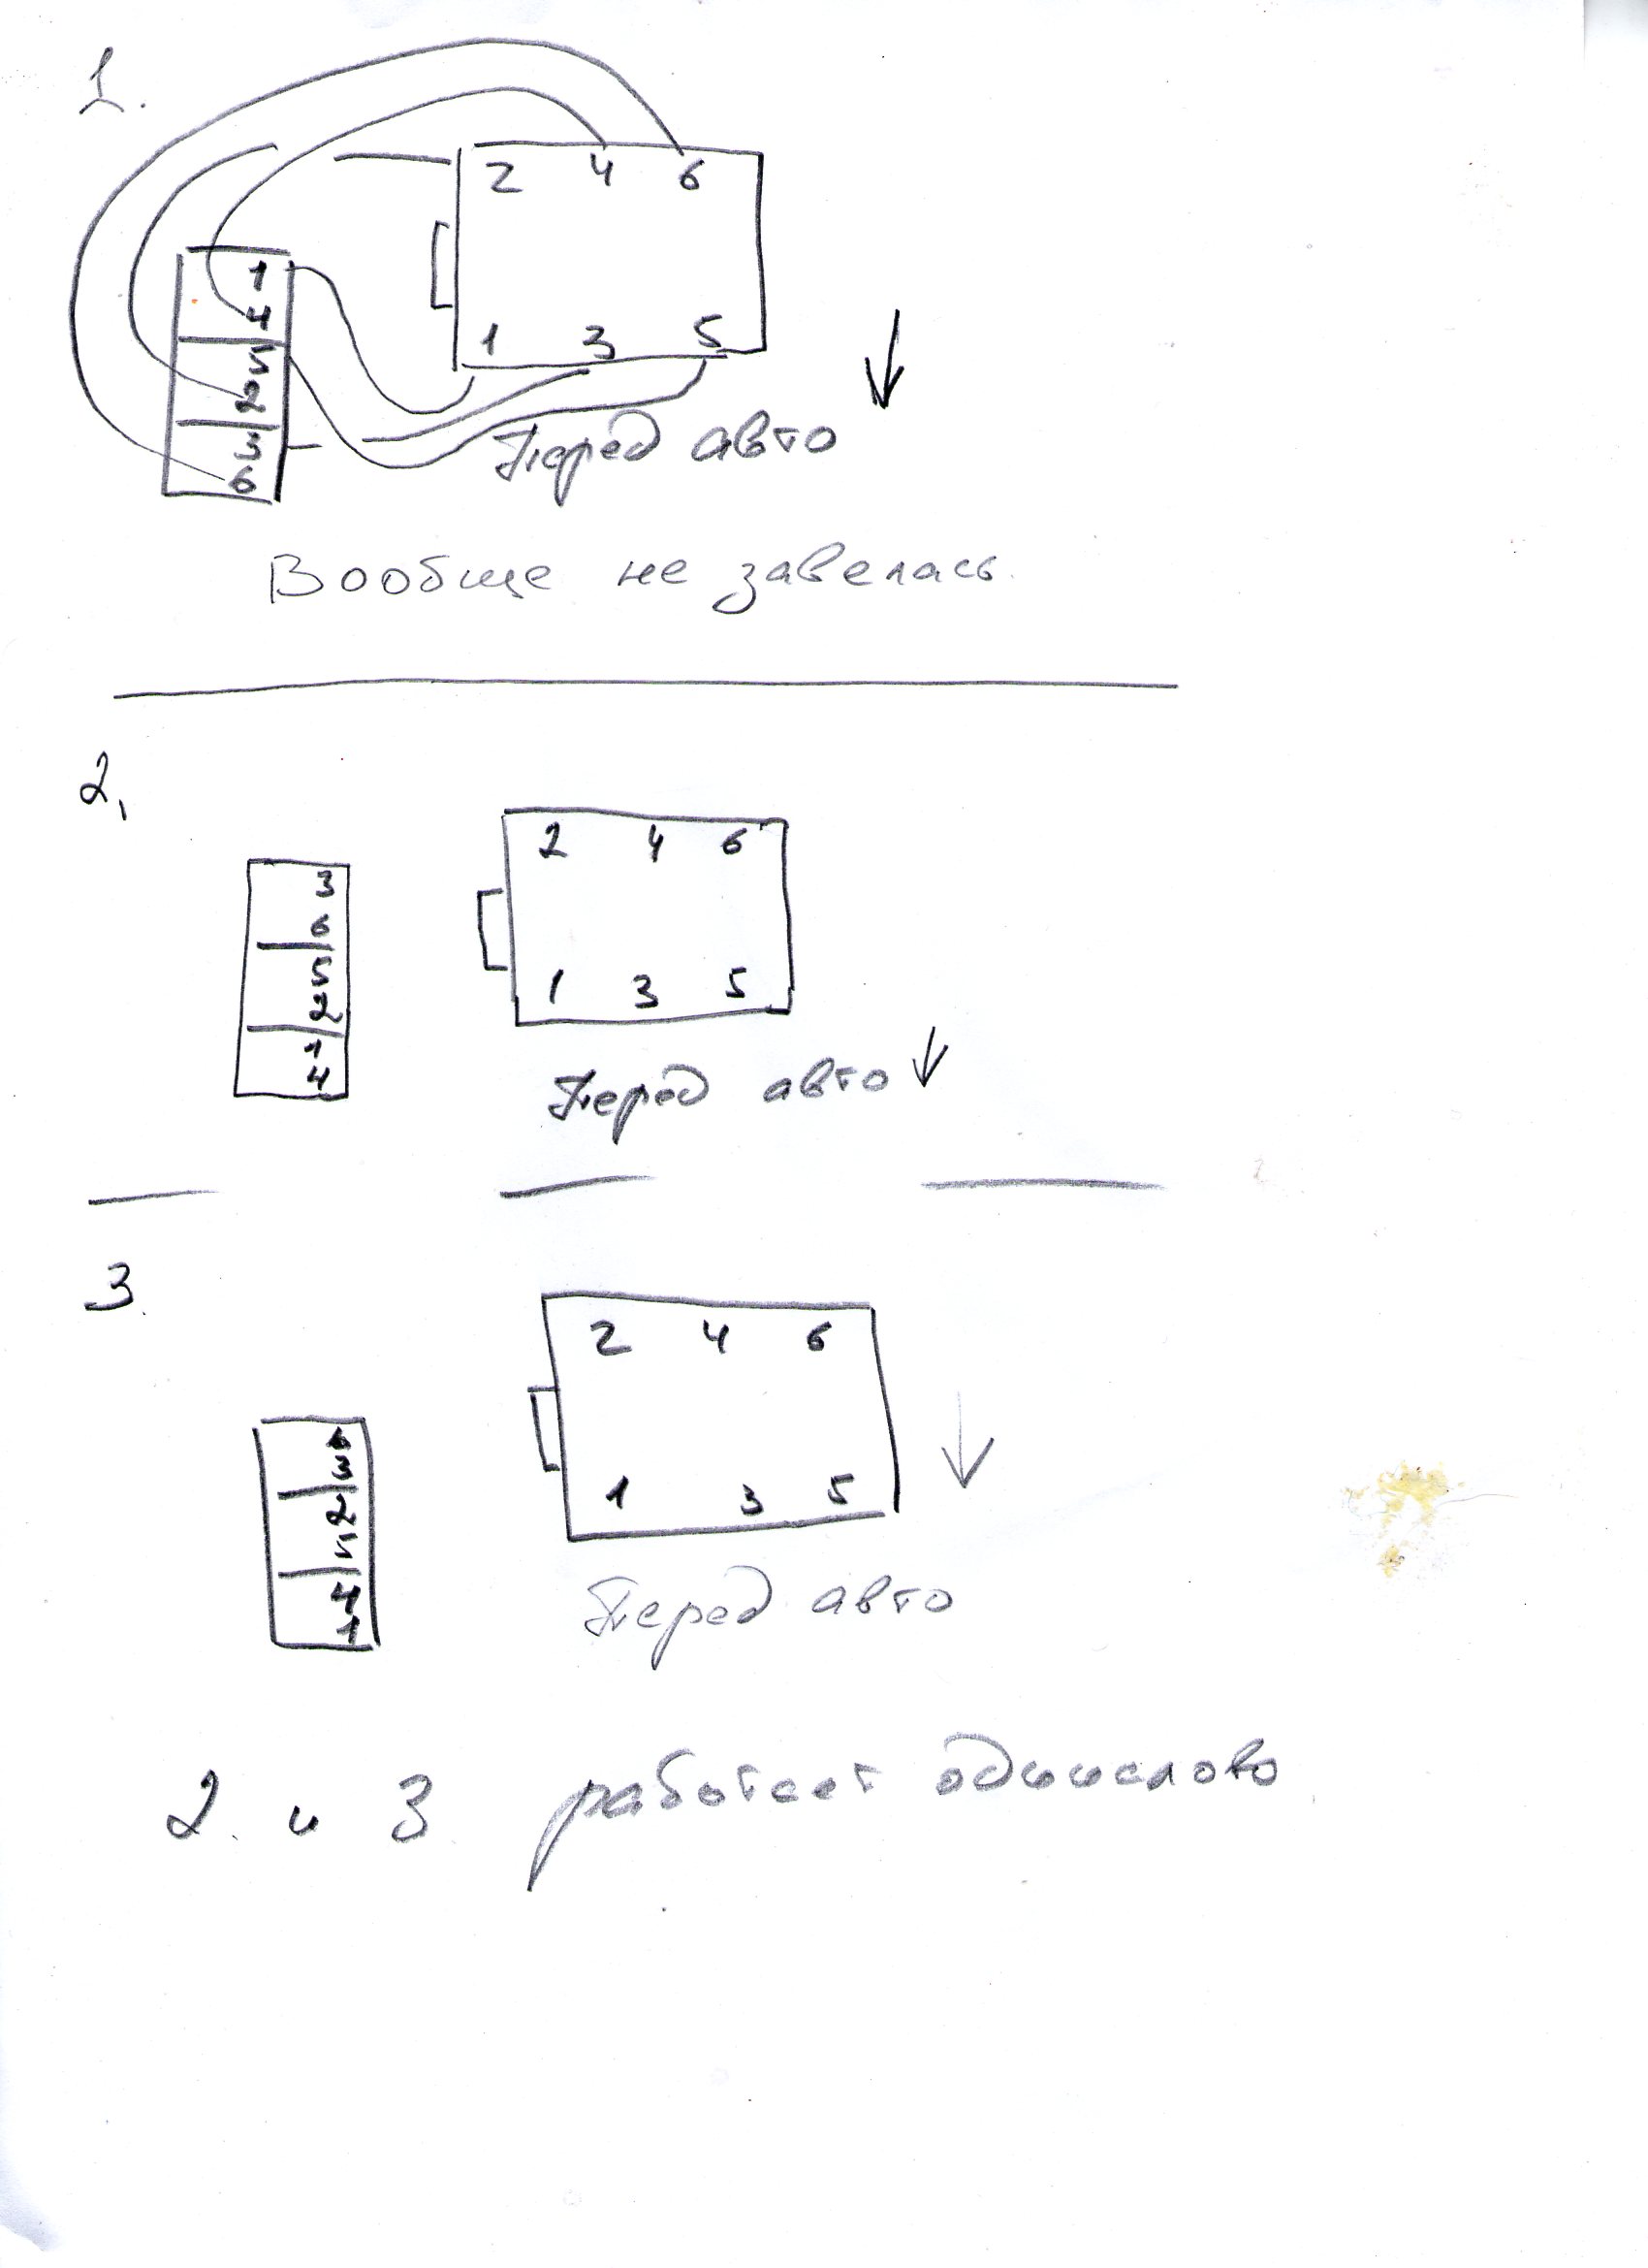 1.
2 4 6
1
4
5
2
3
6
1 3 5
Перед авто
Вообще не завелась.
2.
2 4 6
3
6
5
2
1
4
1 3 5
Перед авто
3.
2 4 6
6
3
2
5
4
1
1 3 5
Перед авто
2. и 3. работает